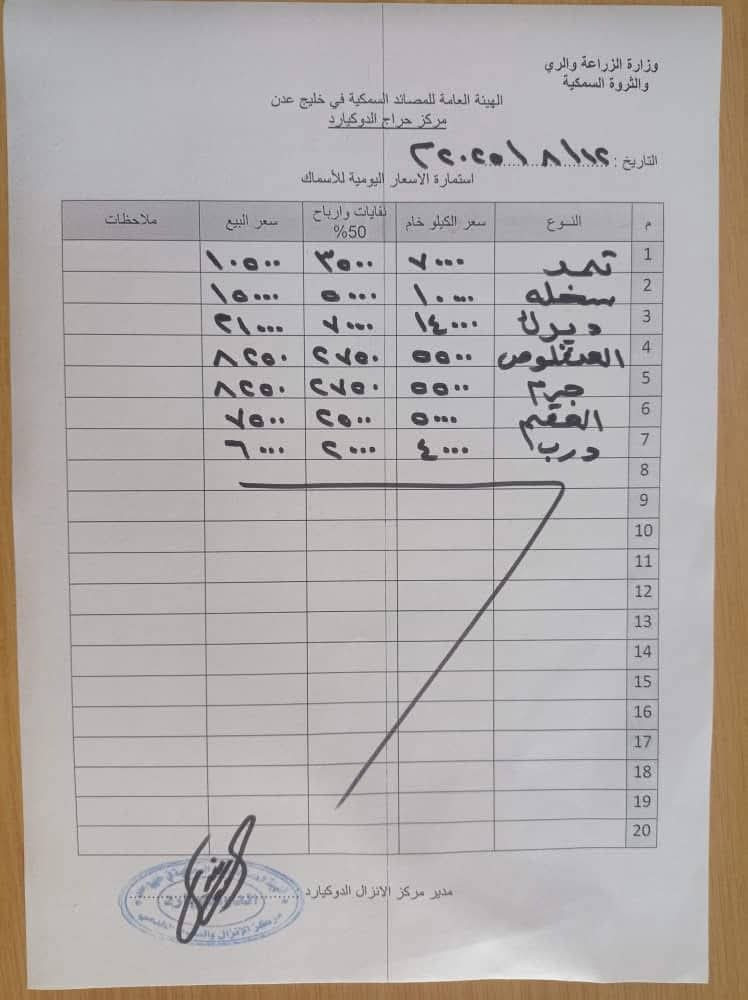 وزارة الزراعة والري
والثروة السمكية
الهيئة العامة للمصائد السمكية في خليج عدن
مركز حراج الدوكيارد
التاريخ : ١٢/ ٨ /٢٠٢٥م
استمارة الاسعار اليومية للأسماك
م النوع سعر الكيلو خام نفايات وارباح 50% سعر البيع ملاحظات
1 ثمد ٧٠٠٠ ٣٥٠٠ ١٠٥٠٠
2 سخله ١٠٠٠٠ ٥٠٠٠ ١٥٠٠٠
3 ديرك ١٤٠٠٠ ٧٠٠٠ ٢١٠٠٠
4 ٥٥٠٠ ٢٧٥٠ ٨٢٥٠
5 جرم ٥٥٠٠ ٢٧٥٠ ٨٢٥٠
6 ٥٠٠٠ ٢٥٠٠ ٧٥٠٠
7 درب ٤٠٠٠ ٢٠٠٠ ٦٠٠٠
8
9
10
11
12
13
14
15
16
17
18
19
20
مدير مركز الانزال الدوكيارد